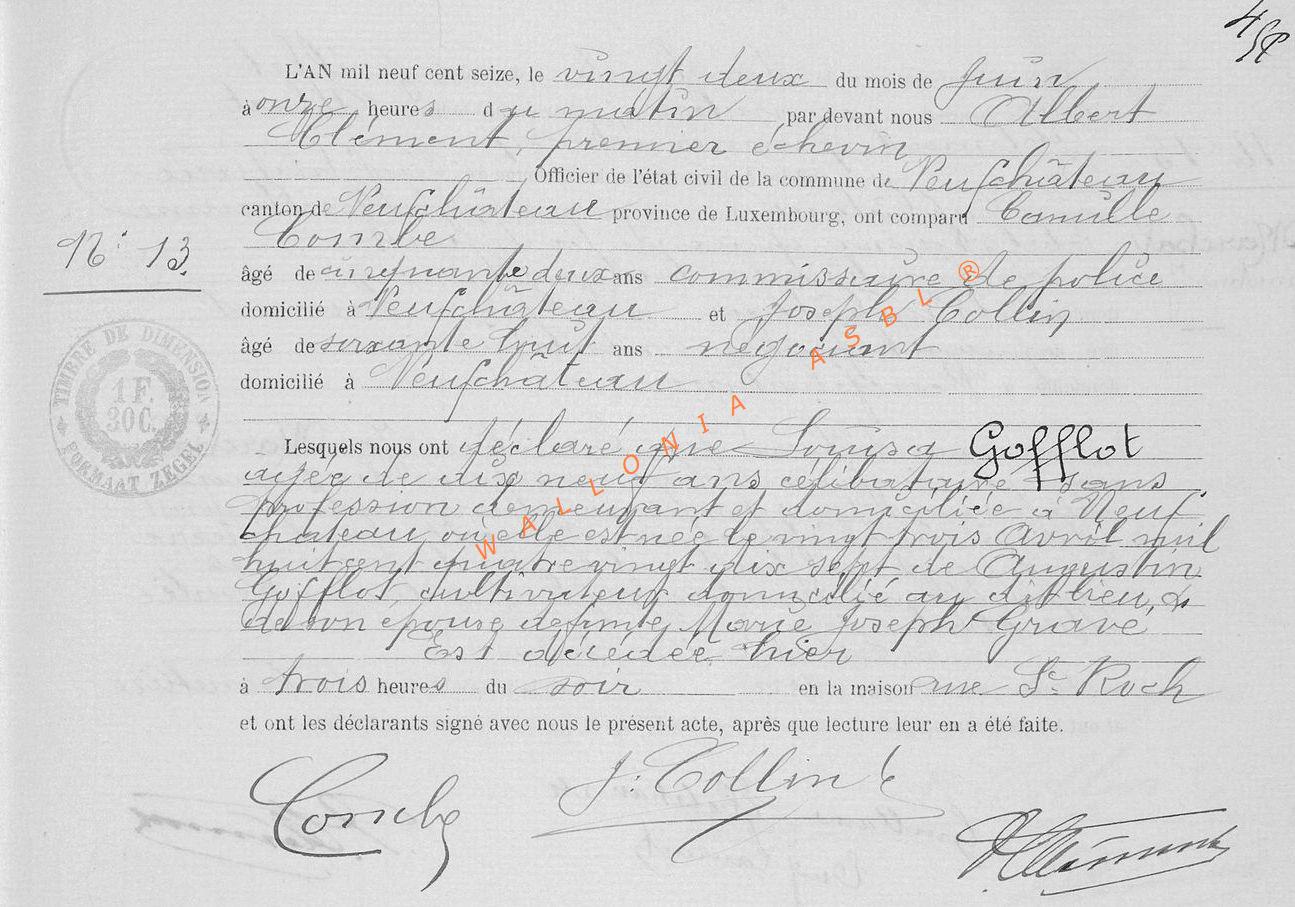 L'AN mil neuf cent seize, le vingt deux du mois de Juin
à onze heures du matin par devant nous Albert
Clément, premier échevin
Officier de l'état civil de la commune de Neufchâteau
canton de Neufchâteau province de Luxembourg, ont comparu Camille
Combe
N° 13
âgé de cinquante deux ans commissaire de police
domicilié à Neufchâteau et Joseph Collin
âgé de soixante huit ans négociant
domicilié à Neufchâteau
TIMBRE DE DIMENSION
1 F.
30 C.
FORMAAT ZEGEL
Lesquels nous ont déclaré que Louisa Gofflot
agée de dix neuf ans célibataire sans
profession demeurant et domiciliée à Neuf
chateau, où elle est née le vingt trois Avril mil
huit cent quatre vingt dix sept de Augustin
Gofflot, cultivateur domicilié au dit lieu, &
de son épouse défunte, Marie Joseph Gravé
Est décédée hier
à trois heures du soir en la maison rue St Roch
et ont les déclarants signé avec nous le présent acte, après que lecture leur en a été faite.
Combe
J. Collin
WALLONIA ASBL ®